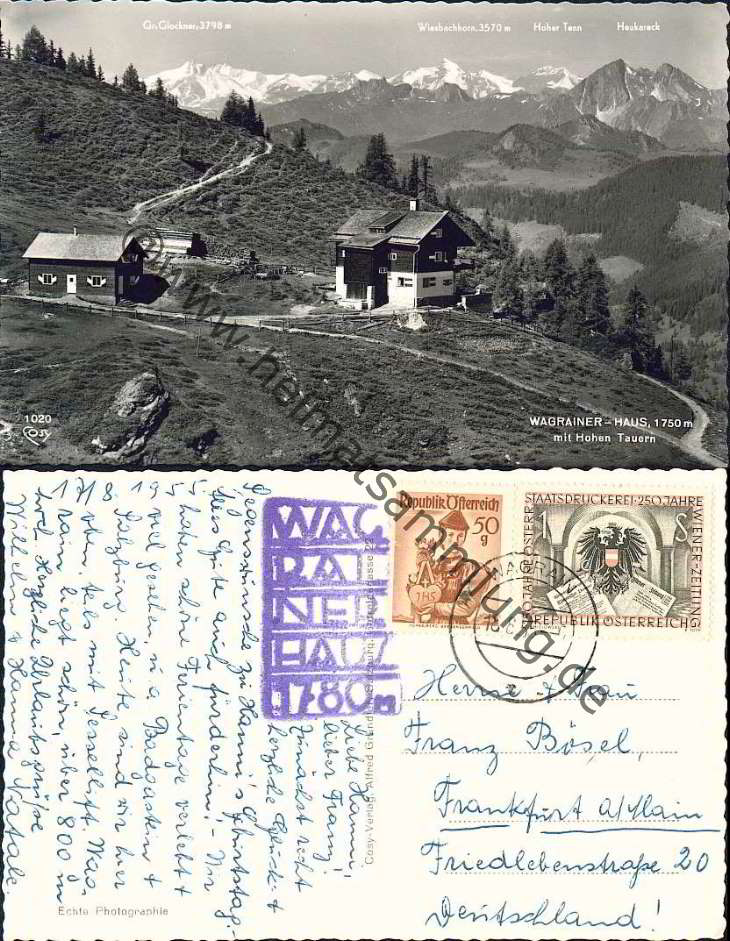 Gr. Glockner, 3798 m
Wiesbachhorn, 3570 m
Hoher Tenn
Heukareck
1020
Cosy
WAGRAINER - HAUS, 1750 m
mit Hohen Tauern
© www.heimatsammlung.de
WAG
RAI
NER
HAUS
1780 m
Republik Österreich
50
g
JHS
STAATSDRUCKEREI · 250 JAHRE
WIENER-ZEITUNG
150 JAHRE ÖSTERR.
1 S
REPUBLIK ÖSTERREICH
WAGRAIN
Cosy-Verlag, Alfred Gründler, Salzburg,
Echte Photographie
Liebe Hanni,
lieber Franz!
Zunächst recht
herzliche Glück- +
Segenswünsche zu Hanni's Geburtstag.
Alles Gute auch fürderhin! - Wir
haben schöne Ferientage verlebt +
viel gesehen, in Badgastein +
Salzburg. Heute sind wir hier
oben, teils mit Sessellift. Wag-
rain liegt schön, über 800 m
hoch. Herzliche Urlaubsgrüße
Wilhelm + Hanna
Herrn + Frau
Franz Bösel,
Frankfurt a/Main
Friedlebenstraße 20
Deutschland!